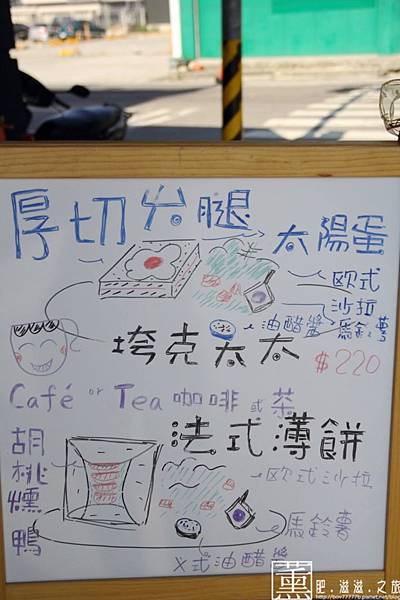 厚切台腿
太陽蛋
歐式
沙拉
油醋醬
馬鈴薯
垮克太太
$220
Café or Tea 咖啡 或 茶
法式薄餅
胡桃燻鴨
歐式沙拉
馬鈴薯
義式油醋醬
薰 肥.滋滋.之旅